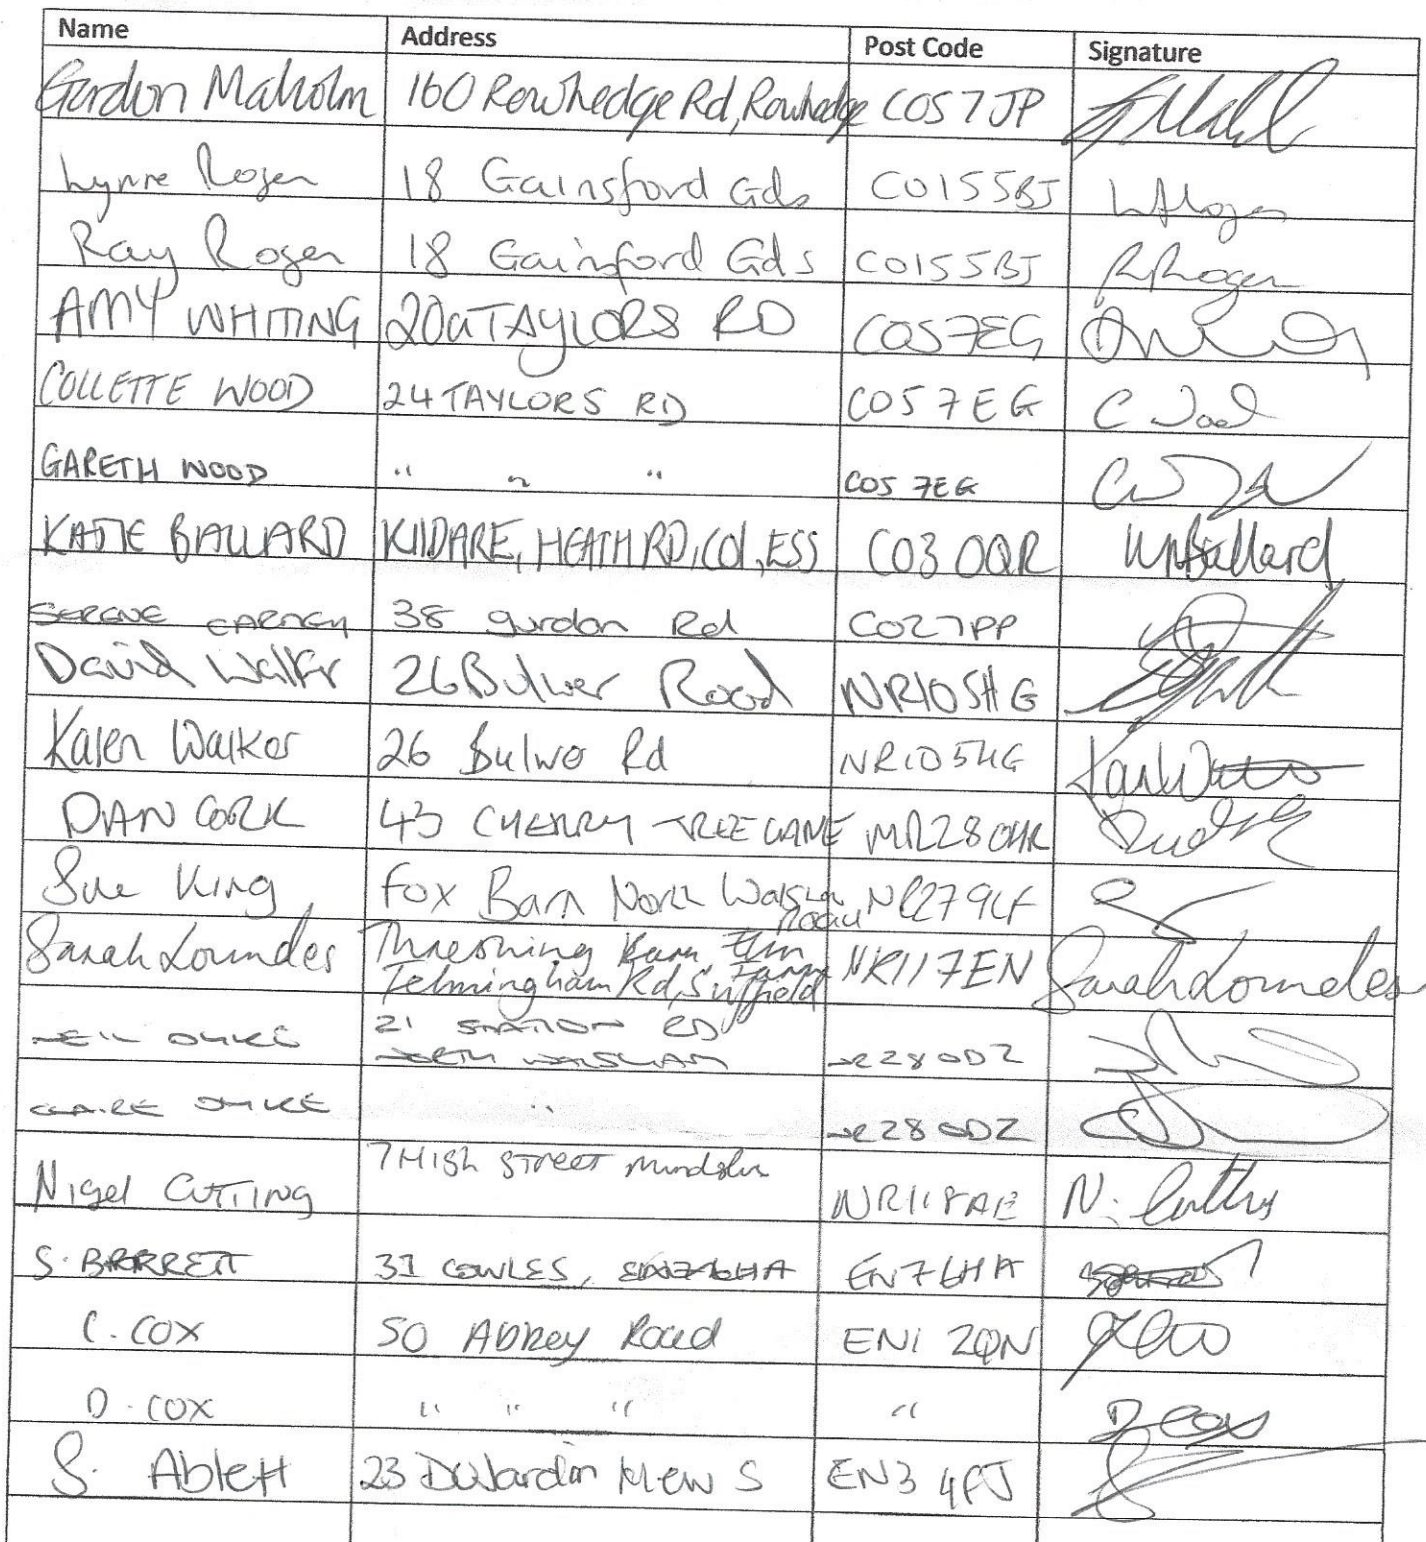 Name Address Post Code Signature
Gordon Maholm 160 Rowhedge Rd, Rowhedge CO5 7JP
Lynne Rogers 18 Gainsford Gds CO155BJ
Ray Rogers 18 Gainsford Gds CO155BJ
AMY WHITING 20a TAYLORS RD CO57EG
COLLETTE WOOD 24 TAYLORS RD CO5 7EG C Wood
GARETH WOOD " " " CO5 7EG
KATIE BALLARD KILDARE, HEATH RD, COL, ESS CO3 0QR Ballard
38 gurdon Rd CO27PP
David Walker 26 Bulwer Road NR105HG
Karen Walker 26 Bulwer Rd NR105HG
DAN CORK 43 CHERRY TREE LANE NR280HR
Sue King Fox Barn North Walsham Road NR279LF
Sarah Loundes Threshing Barn, Elm Farm NR117EN Sarah Loundes
Felmingham Rd, Suffield
21 STATION RD
NORTH WALSHAM NR280DZ
CLAIRE " NR280DZ
Nigel CUTTING 7 High Street NR118AE N. Cutting
S. BARRETT 31 COWLES, EN76HA
C. COX 50 Abbey Road EN1 2QN
D. COX " " " " D Cox
S. Ablett 23 Dujardin Mews EN3 4PJ